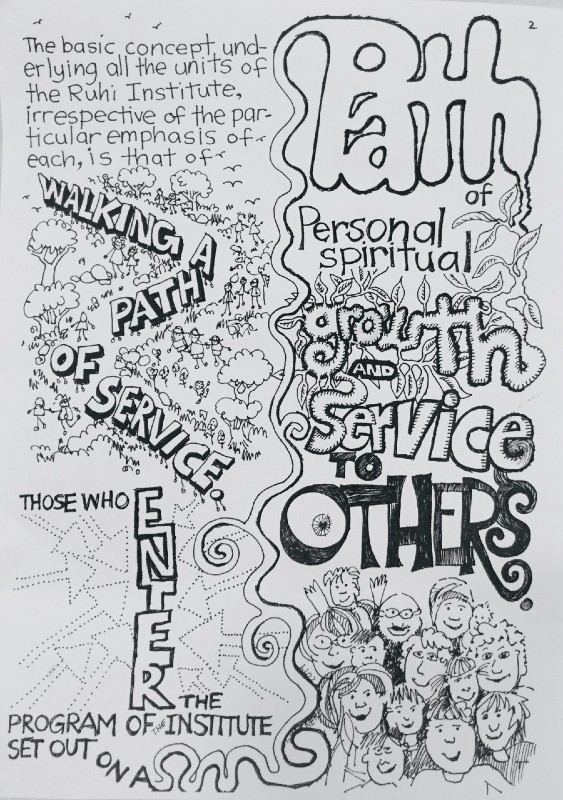 2
The basic concept und-
erlying all the units of
the Ruhi Institute,
irrespective of the par-
ticular emphasis of
each, is that of
WALKING A
PATH
OF SERVICE.
THOSE WHO
ENTER
THE
PROGRAM OF THE INSTITUTE
SET OUT ON A
Path
of
Personal
spiritual
growth
AND
Service
TO
OTHERS.